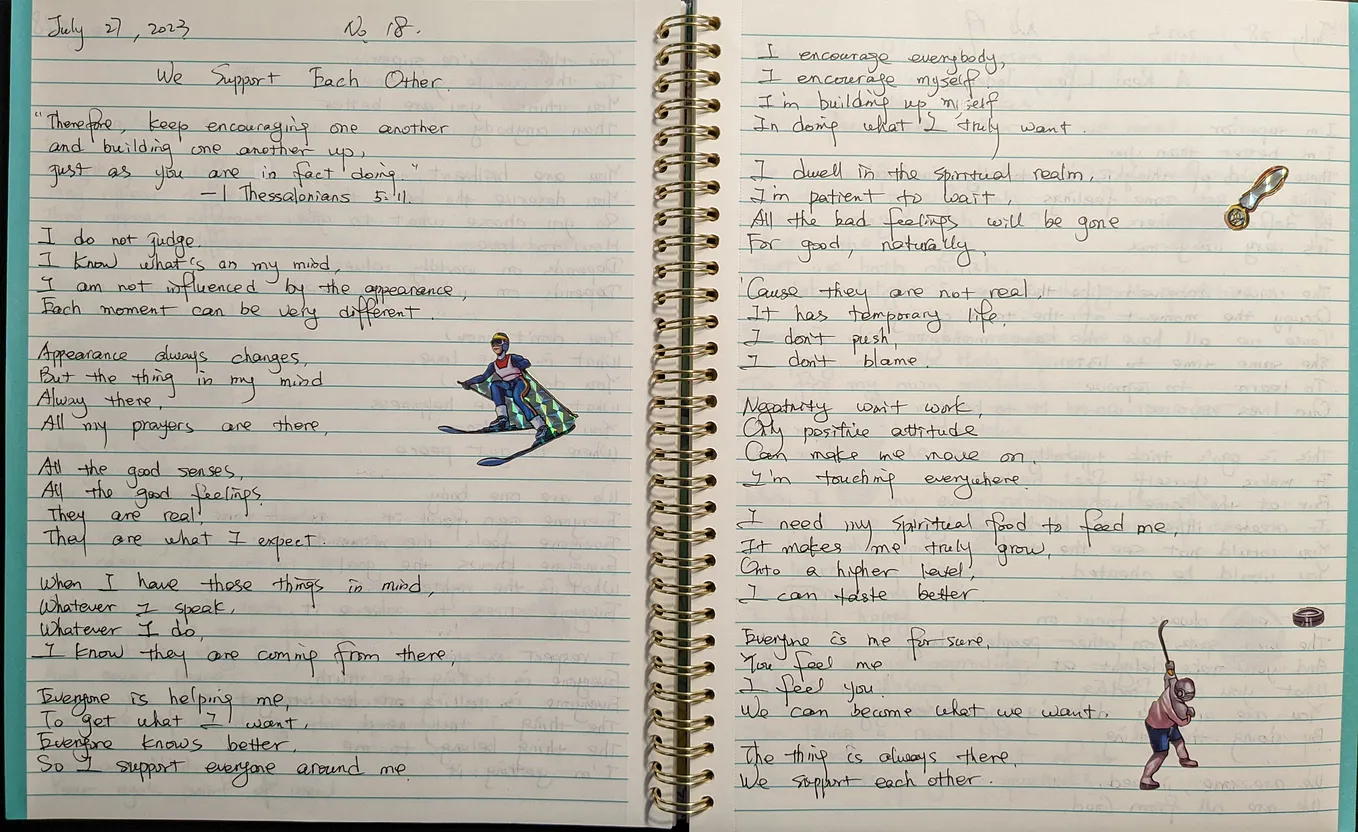 July 27, 2023 No. 18.
We Support Each Other.
"Therefore, keep encouraging one another
and building one another up,
just as you are in fact doing."
—1 Thessalonians 5:11.
I do not judge.
I know what's on my mind,
I am not influenced by the appearance,
Each moment can be very different.
Appearance always changes,
But the thing in my mind
Alway there,
All my prayers are there,
All the good senses,
All the good feelings.
They are real,
They are what I expect.
When I have those things in mind,
Whatever I speak,
Whatever I do,
I know they are coming from there,
Everyone is helping me,
To get what I want,
Everyone knows better.
So I support everyone around me.
I encourage everybody,
I encourage myself.
I'm building up myself
In doing what I truly want.
I dwell in the spiritual realm,
I'm patient to wait,
All the bad feelings will be gone
For good, naturally,
'Cause they are not real,
It has temporary life.
I don't push,
I don't blame.
Negativity won't work,
Only positive attitude
Can make me move on,
I'm touching everywhere.
I need my spiritual food to feed me,
It makes me truly grow,
Onto a higher level,
I can taste better.
Everyone is me for sure,
You feel me
I feel you.
We can become what we want.
The thing is always there,
We support each other.